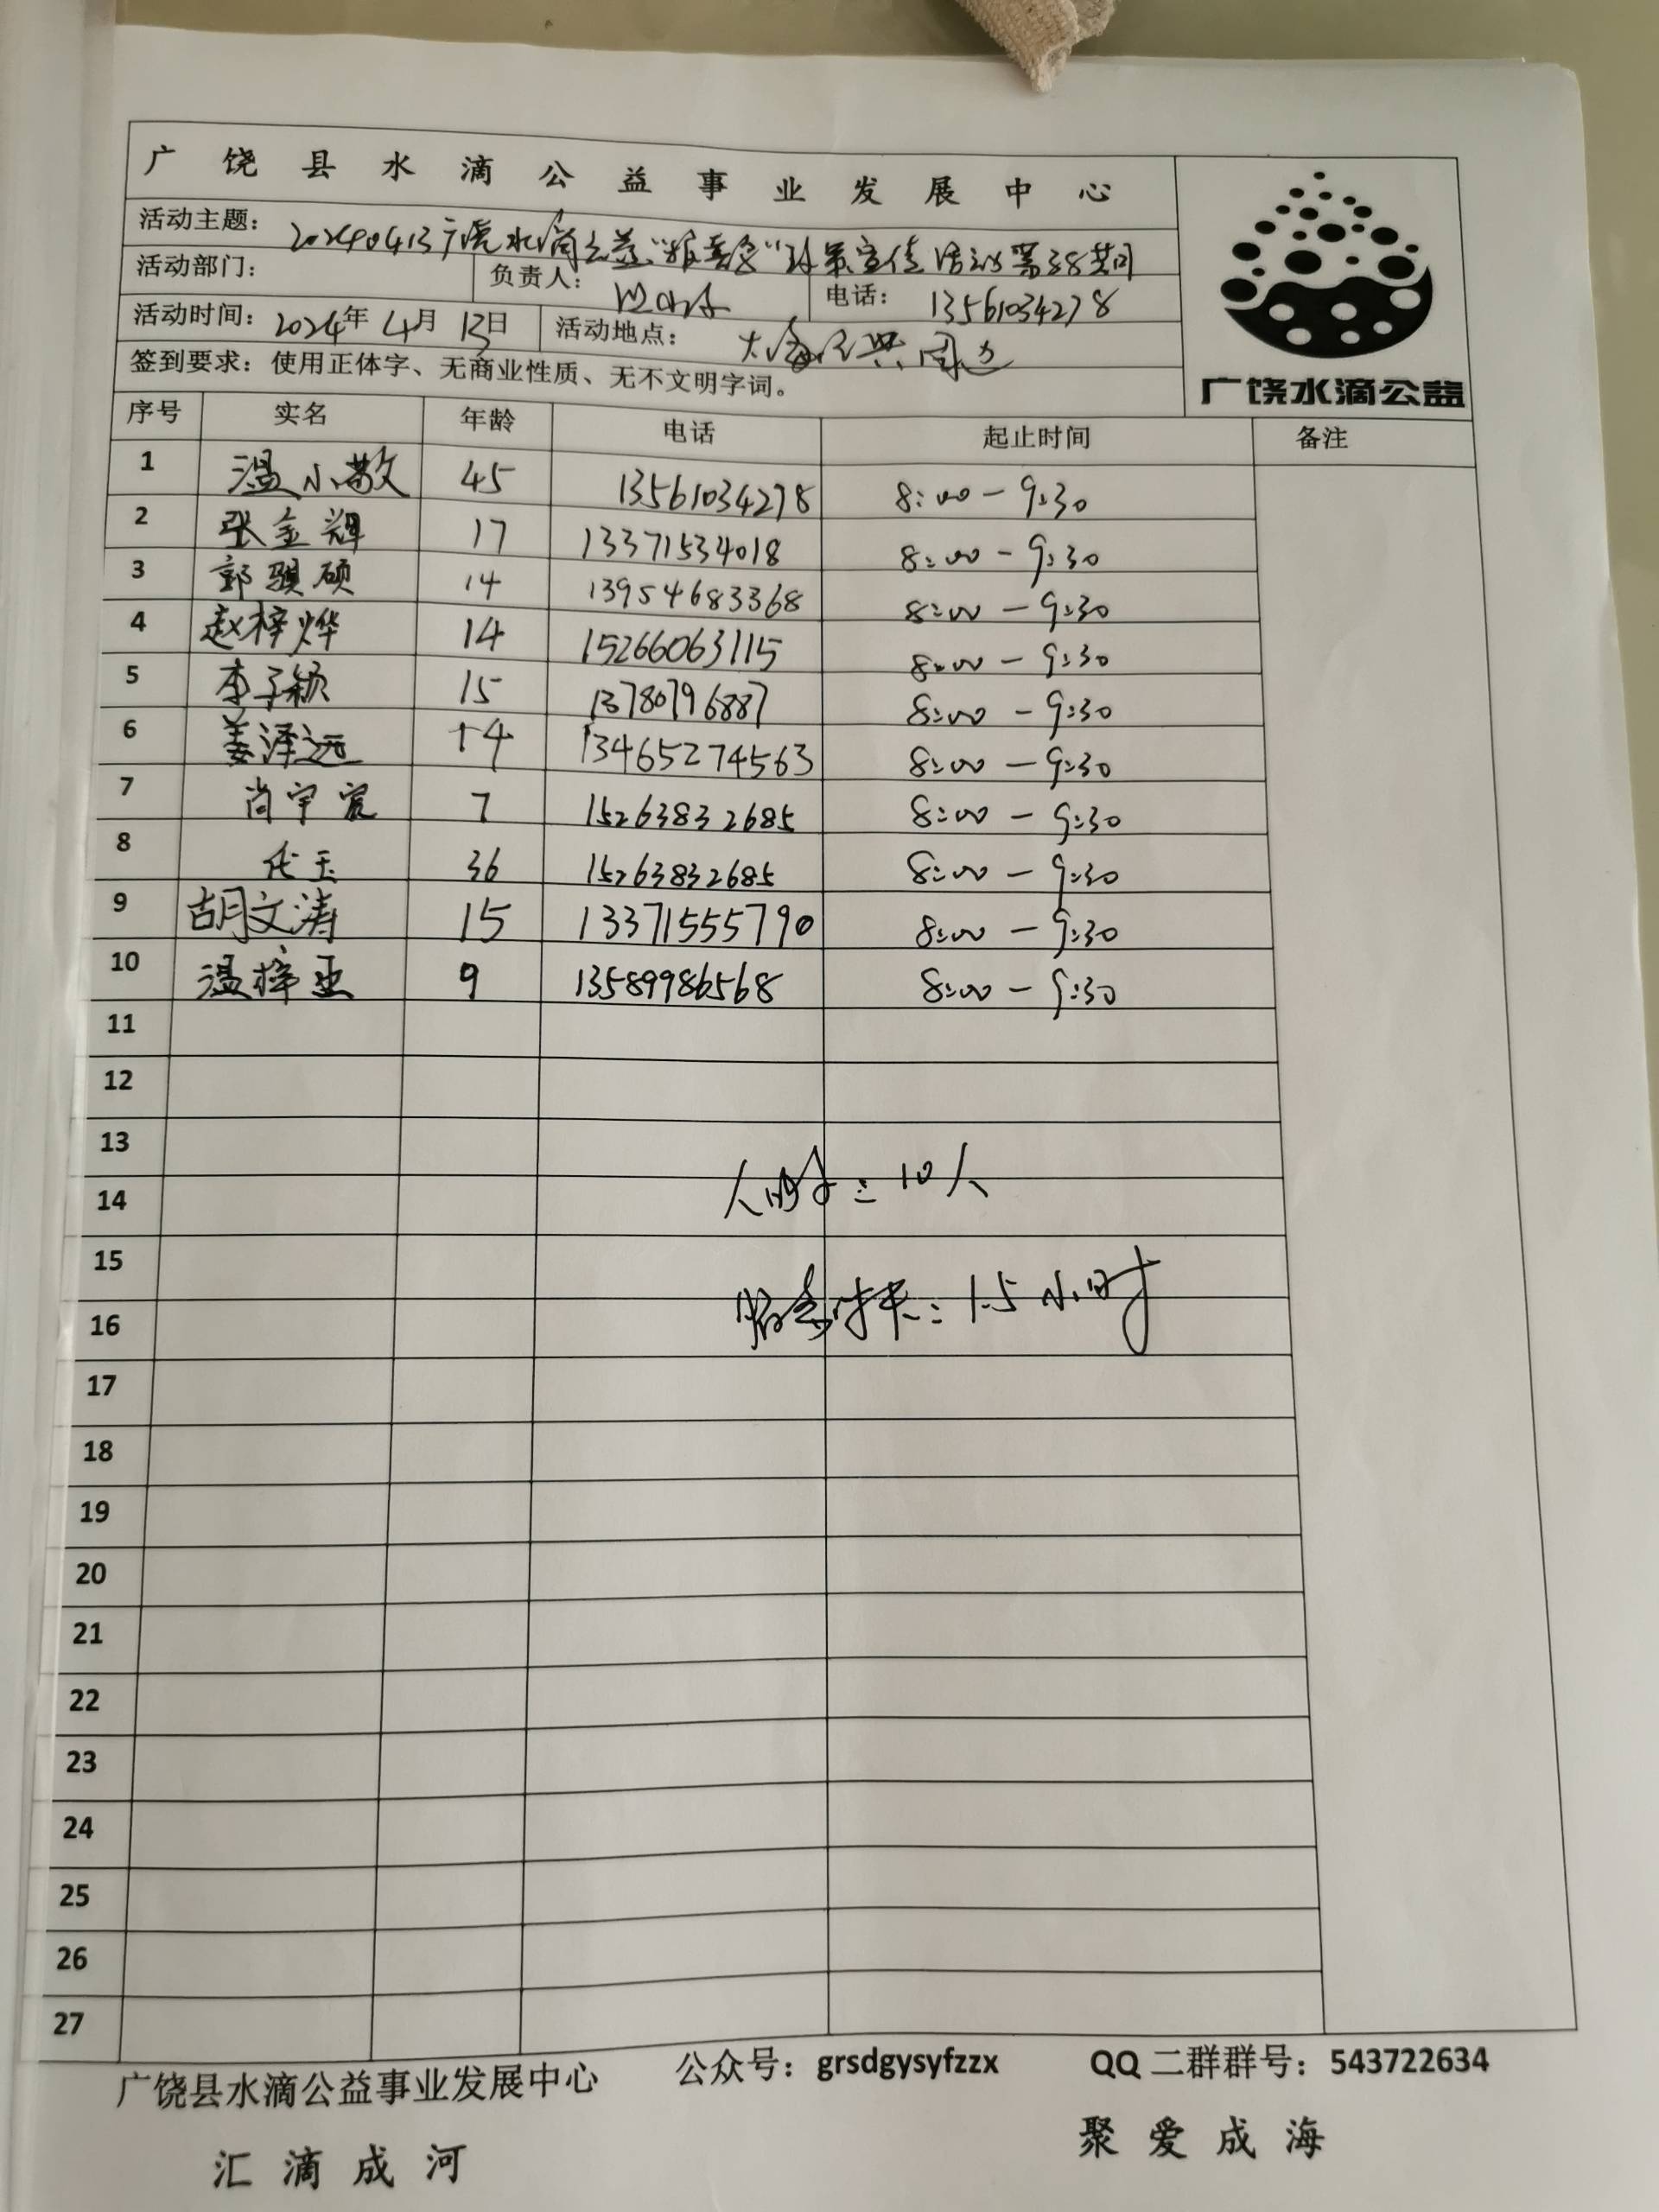 广饶县水滴公益事业发展中心
活动主题：20240413广饶水滴公益"振善安"政策宣传活动第38共同
活动部门： 负责人： 电话：13561034278
活动时间：2024年4月13日 活动地点：大海 周边
签到要求：使用正体字、无商业性质、无不文明字词。
广饶水滴公益
序号 实名 年龄 电话 起止时间 备注
1 温小散 45 13561034278 8:00-9:30
2 张金辉 17 13371534018 8:00-9:30
3 郭骐硕 14 13954683368 8:00-9:30
4 赵梓烨 14 15266063115 8:00-9:30
5 李子颖 15 13780796887 8:00-9:30
6 姜泽远 14 13465274563 8:00-9:30
7 尚宇宽 7 15263832685 8:00-9:30
8 代玉 36 15263832685 8:00-9:30
9 胡文涛 15 13371555790 8:00-9:30
10 温梓亚 9 13589986568 8:00-9:30
11
12
13
14
人 ：10人
15
16
服务时长：1.5小时
17
18
19
20
21
22
23
24
25
26
27
广饶县水滴公益事业发展中心 公众号：grsdgysyfzzx QQ二群群号：543722634
汇滴成河 聚爱成海